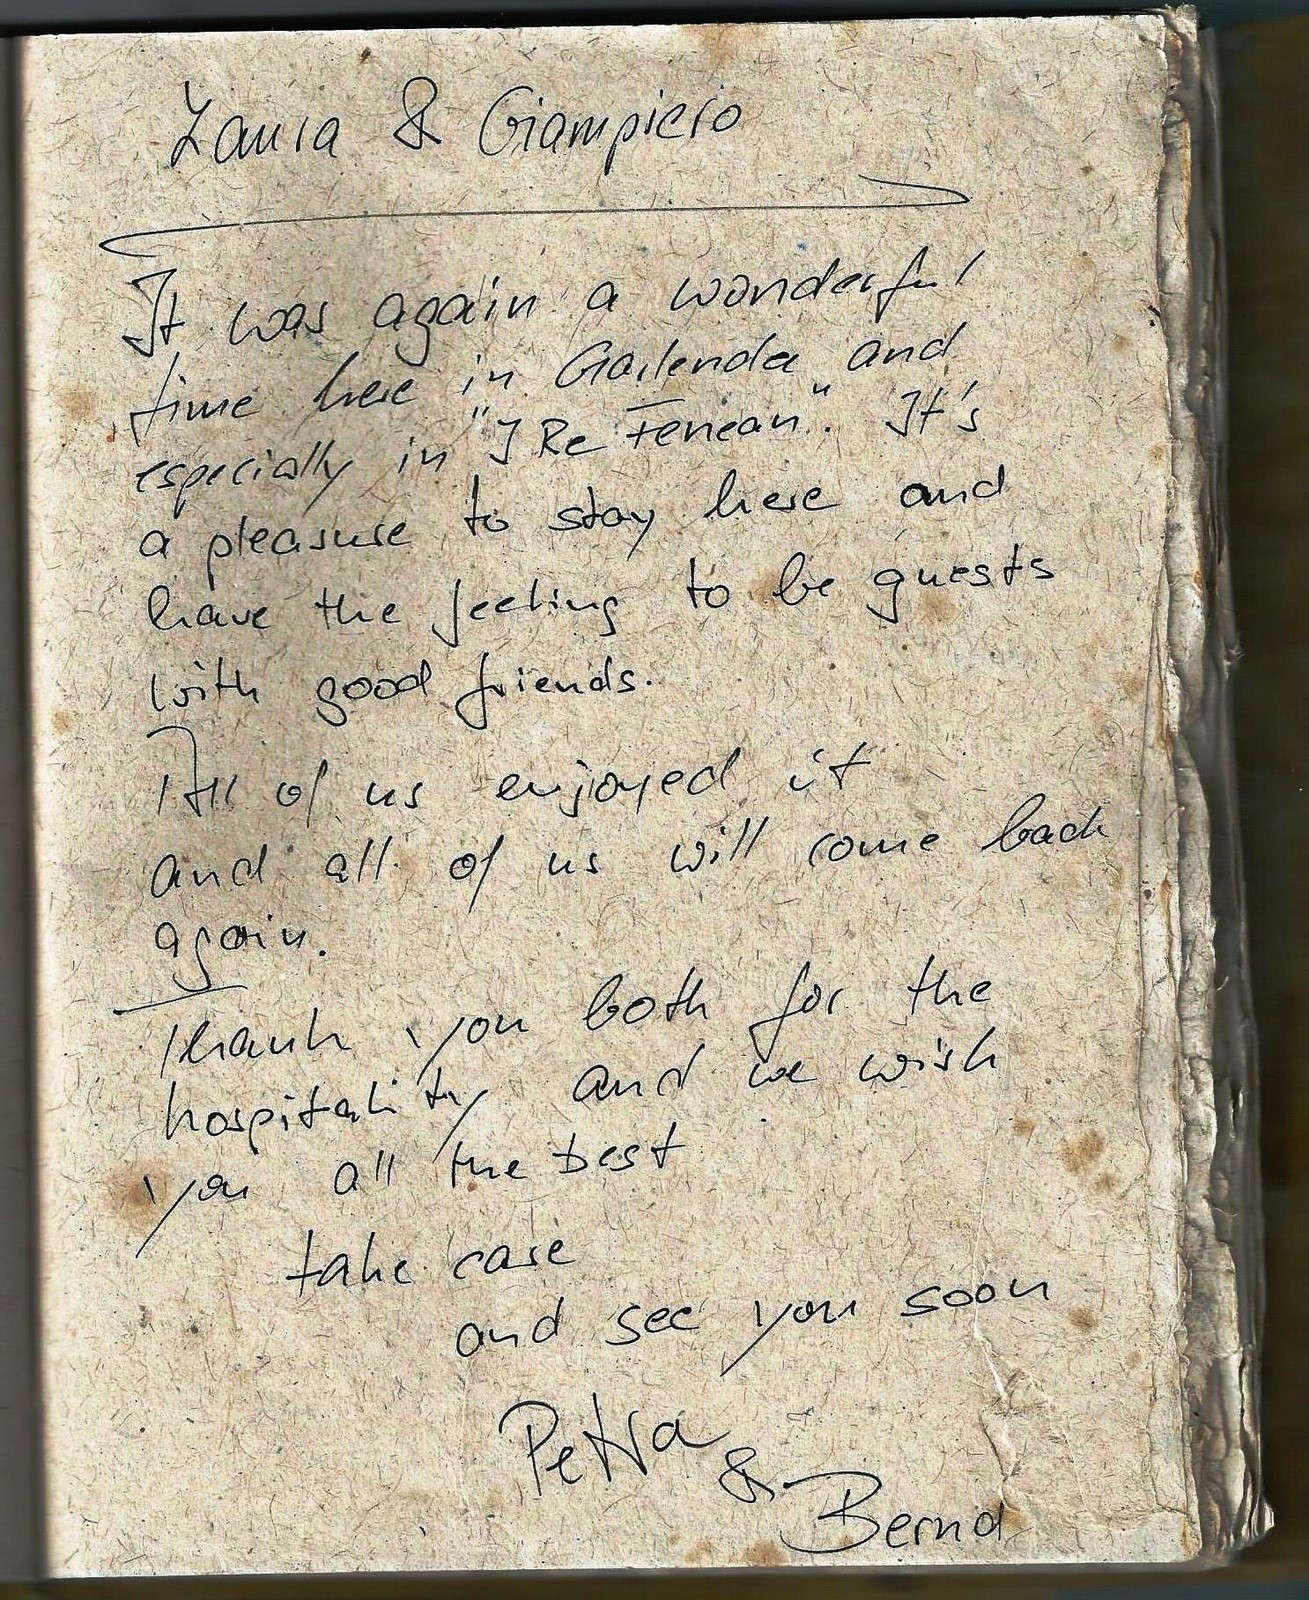 Laura & Giampiero
It was again a wonderful
time here in Garlenda and
especially in "I Re Tenean". It's
a pleasure to stay here and
have the feeling to be guests
with good friends.
All of us enjoyed it
and all of us will come back
again.
Thank you both for the
hospitality and we wish
you all the best
take care
and see you soon
Petra
&
Bernd